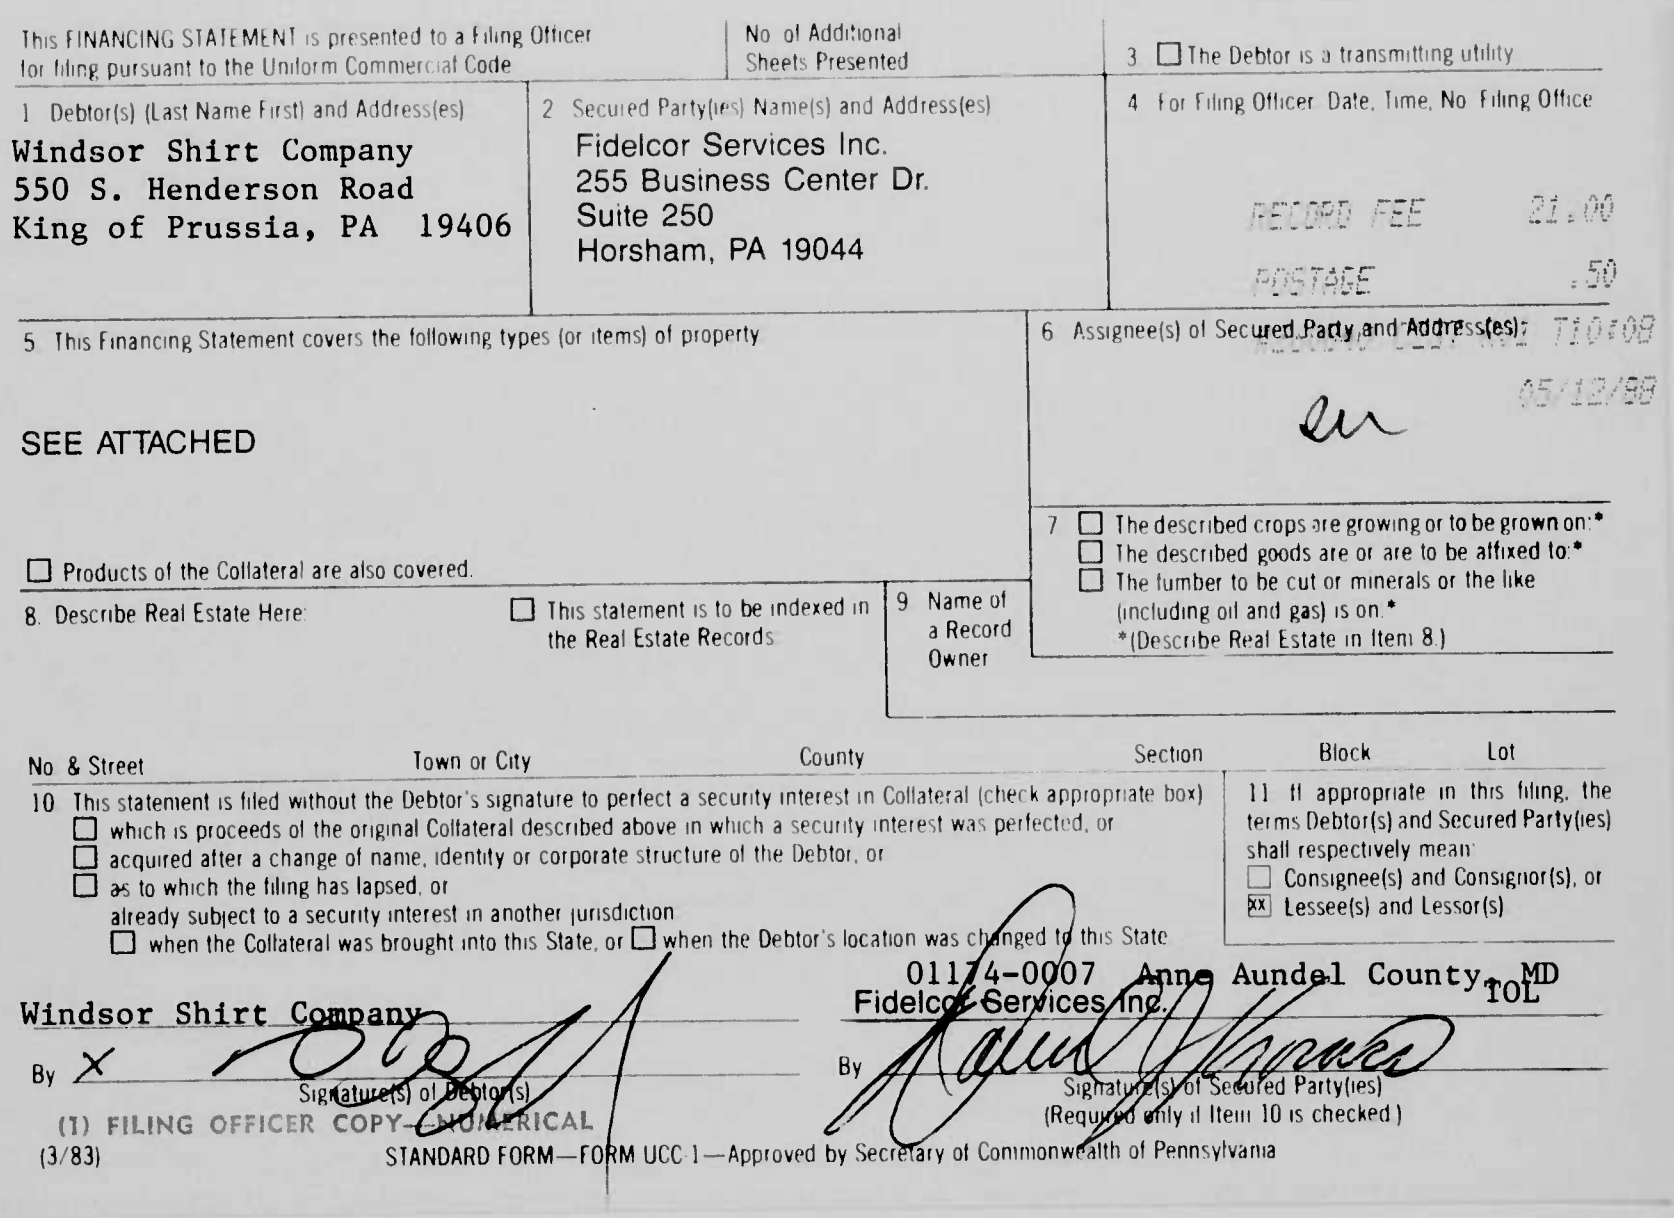 This FINANCING STATEMENT is presented to a Filing Officer
for filing pursuant to the Uniform Commercial Code
No of Additional
Sheets Presented
3 The Debtor is a transmitting utility
1 Debtor(s) (Last Name First) and Address(es)
Windsor Shirt Company
550 S. Henderson Road
King of Prussia, PA 19406
2 Secured Party(ies) Name(s) and Address(es)
Fidelcor Services Inc.
255 Business Center Dr.
Suite 250
Horsham, PA 19044
4 For Filing Officer Date, Time, No Filing Office
RECORD FEE 21.00
POSTAGE .50
T10:08
05/12/88
5 This Financing Statement covers the following types (or items) of property
SEE ATTACHED
Products of the Collateral are also covered.
6 Assignee(s) of Secured Party and Address(es)
7 The described crops are growing or to be grown on:*
The described goods are or are to be affixed to:*
The lumber to be cut or minerals or the like
(including oil and gas) is on.*
*(Describe Real Estate in Item 8.)
8. Describe Real Estate Here:
This statement is to be indexed in
the Real Estate Records
9 Name of
a Record
Owner
No & Street Town or City County Section Block Lot
10 This statement is filed without the Debtor's signature to perfect a security interest in Collateral (check appropriate box)
which is proceeds of the original Collateral described above in which a security interest was perfected, or
acquired after a change of name, identity or corporate structure of the Debtor, or
as to which the filing has lapsed, or
already subject to a security interest in another jurisdiction
when the Collateral was brought into this State, or when the Debtor's location was changed to this State
11 If appropriate in this filing, the
terms Debtor(s) and Secured Party(ies)
shall respectively mean:
Consignee(s) and Consignor(s), or
xx Lessee(s) and Lessor(s)
01174-0007 Anne Aundel County, MD
TOL
Windsor Shirt Company
By X
Signature(s) of Debtor(s)
Fidelcor Services Inc.
By
Signature(s) of Secured Party(ies)
(Required only if Item 10 is checked)
(1) FILING OFFICER COPY—NUMERICAL
(3/83)
STANDARD FORM—FORM UCC 1—Approved by Secretary of Commonwealth of Pennsylvania